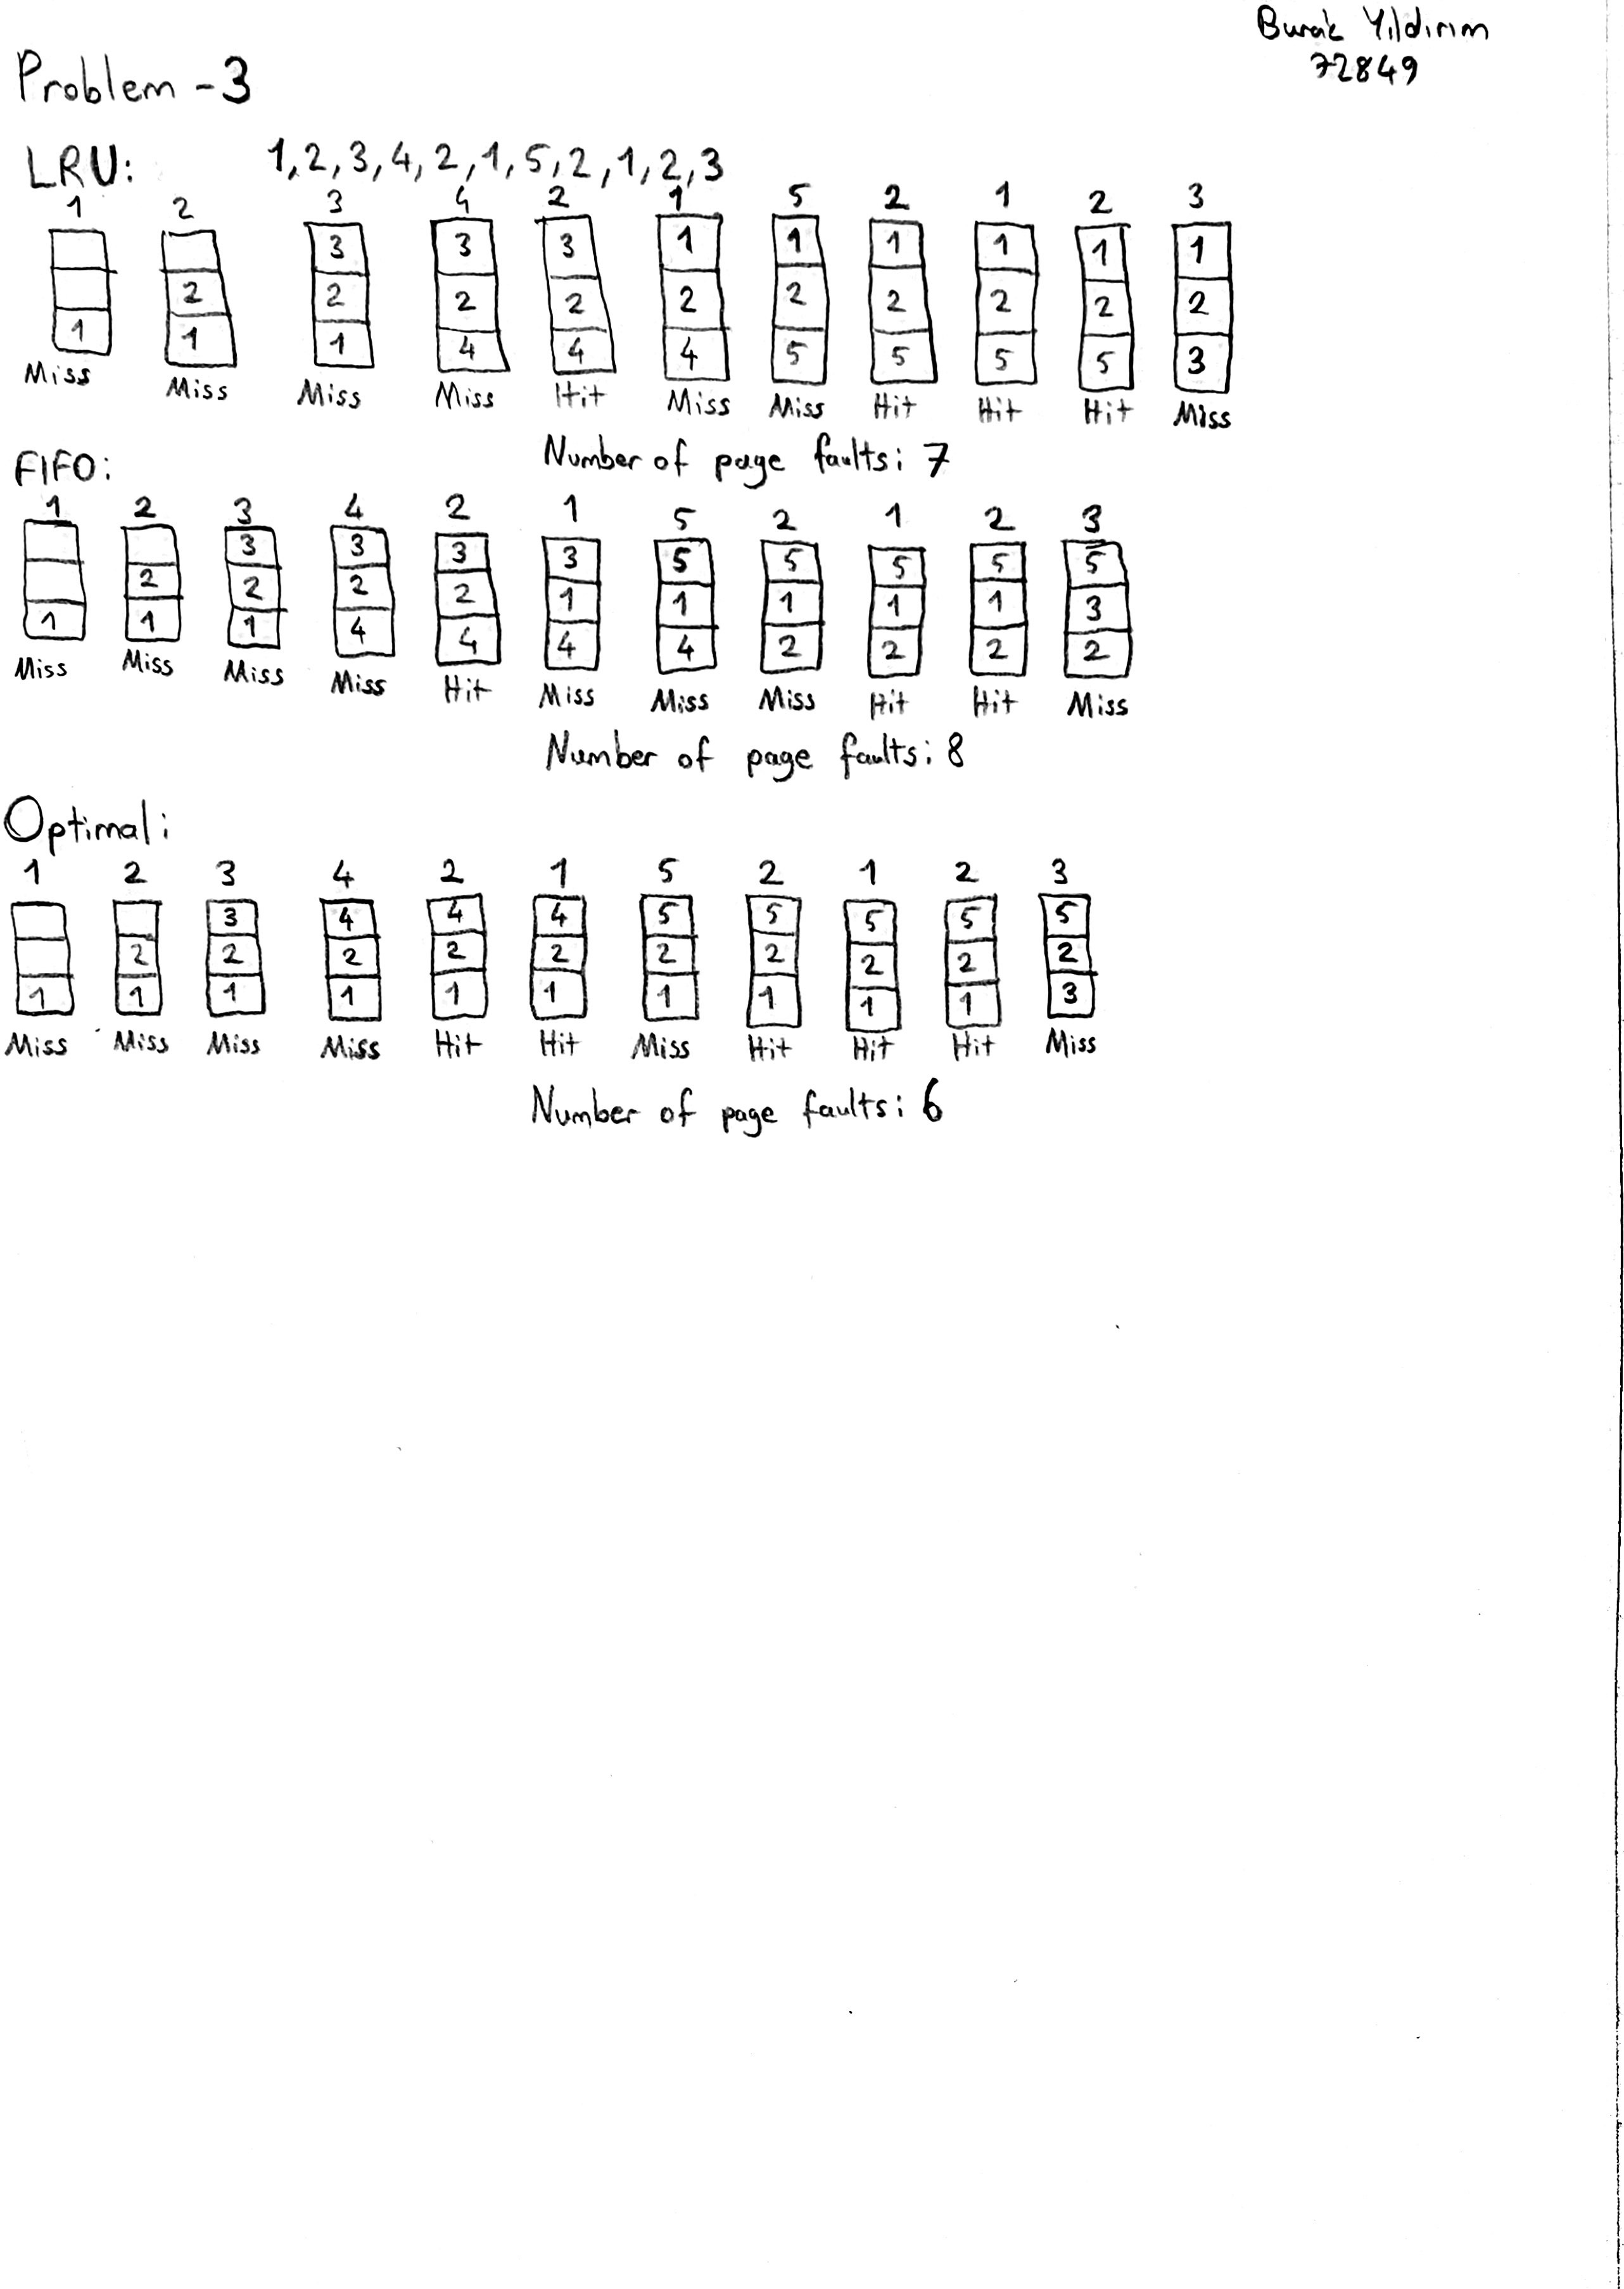 Burak Yıldırım
72849
Problem - 3
LRU: 1,2,3,4,2,1,5,2,1,2,3
1 2 3 4 2 1 5 2 1 2 3
3 3 3 1 1 1 1 1 1
2 2 2 2 2 2 2 2 2 2
1 1 1 4 4 4 5 5 5 5 3
Miss Miss Miss Miss Hit Miss Miss Hit Hit Hit Miss
Number of page faults: 7
FIFO:
1 2 3 4 2 1 5 2 1 2 3
3 3 3 3 5 5 5 5 5
2 2 2 2 1 1 1 1 1 3
1 1 1 4 4 4 4 2 2 2 2
Miss Miss Miss Miss Hit Miss Miss Miss Hit Hit Miss
Number of page faults: 8
Optimal:
1 2 3 4 2 1 5 2 1 2 3
3 4 4 4 5 5 5 5 5
2 2 2 2 2 2 2 2 2 2
1 1 1 1 1 1 1 1 1 1 3
Miss Miss Miss Miss Hit Hit Miss Hit Hit Hit Miss
Number of page faults: 6